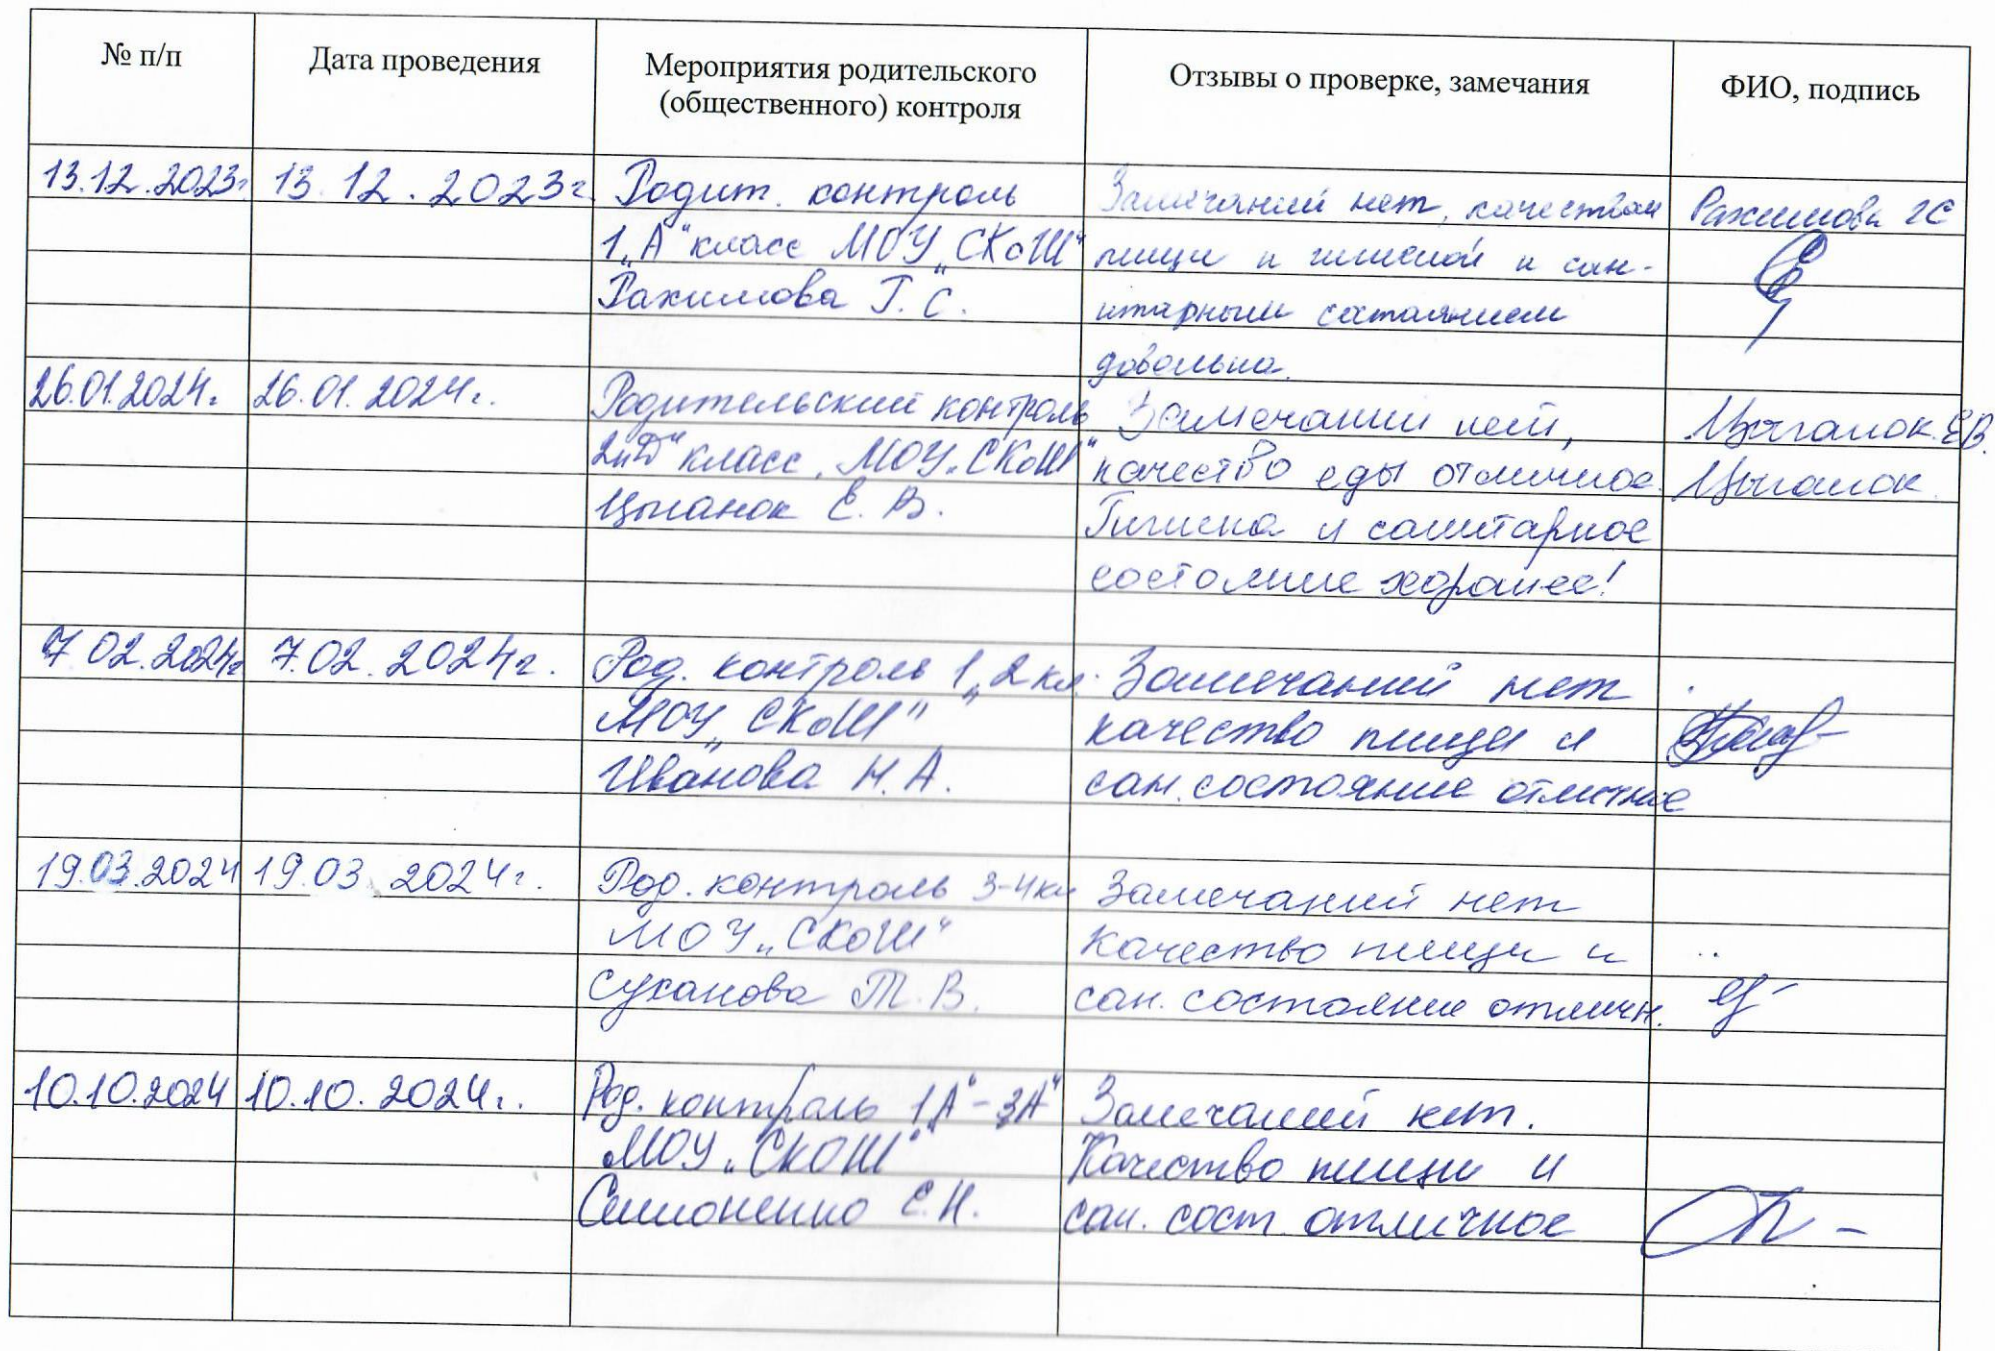 № п/п
Дата проведения
Мероприятия родительского
(общественного) контроля
Отзывы о проверке, замечания
ФИО, подпись
13.12.2023г.
13.12.2023г.
Родит. контроль
1„А" класс МОУ „СКоШ"
Рахимова Г. С.
Замечаний нет, качеством
пищи и гигиеной и сан-
итарным состоянием
довольна.
Рахимова ГС
26.01.2024г.
26.01.2024г.
Родительский контроль
2„Д" класс, МОУ „СКоШ"
Цыганок Е. В.
Замечании нет,
качество еды отличное.
Гигиена и санитарное
состояние хорошее!
Цыганок. ЕВ.
Цыганок
7.02.2024г
7.02.2024г.
Род. контроль 1, 2 кл.
МОУ „СКоШ"
Иванова Н.А.
Замечаний нет
качество пищи и
сан. состояние отличное
19.03.2024
19.03 2024г.
Род. контроль 3-4кл
МОУ „СКОШ"
Суханова Т.В.
Замечаний нет
Качество пищи и
сан. состояние отличн.
10.10.2024
10.10.2024г.
Род. контроль 1„А"-3„А"
МОУ „СКОШ"
Симоненко Е.Н.
Замечаний нет.
Качество пищи и
сан. сост. отличное